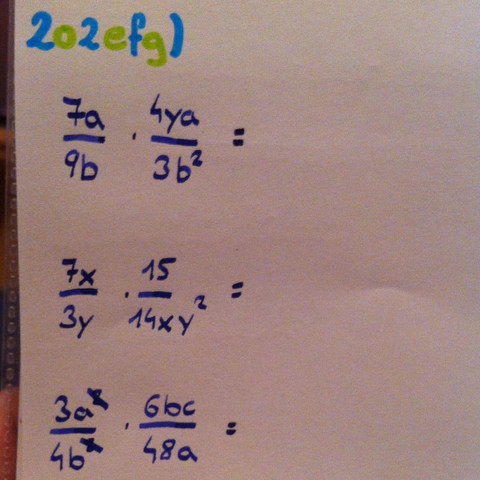 202efg)
7a/9b · 4ya/3b² =
7x/3y · 15/14xy² =
3a/4b · 6bc/48a =